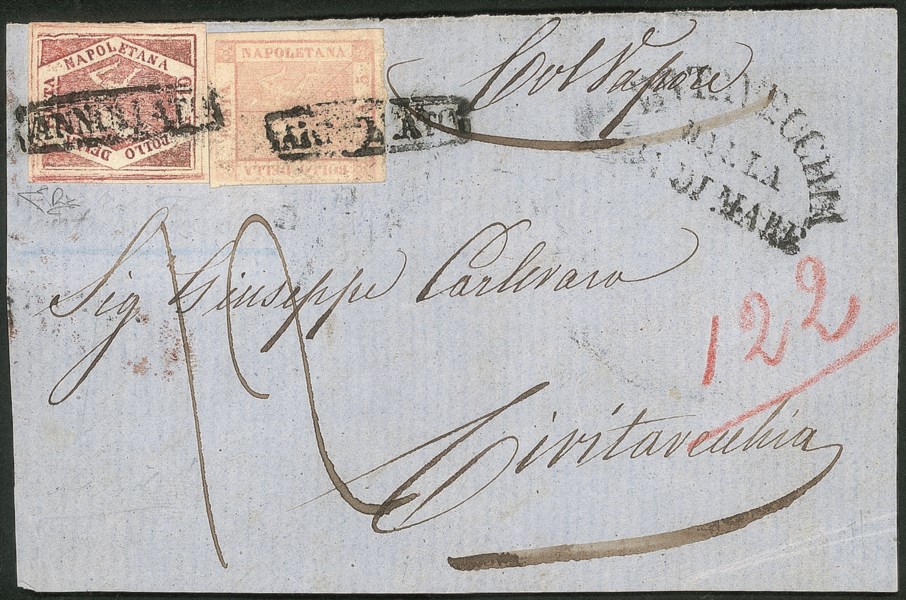 NAPOLETANA
BOLLO DELLA
ANNULLATO
NAPOLETANA
BOLLO DELLA
Col Vapore
CIVITAVECCHIA
DALLA
VIA DI MARE
Sig Giuseppe Carlevaro
12
122
Civitavecchia